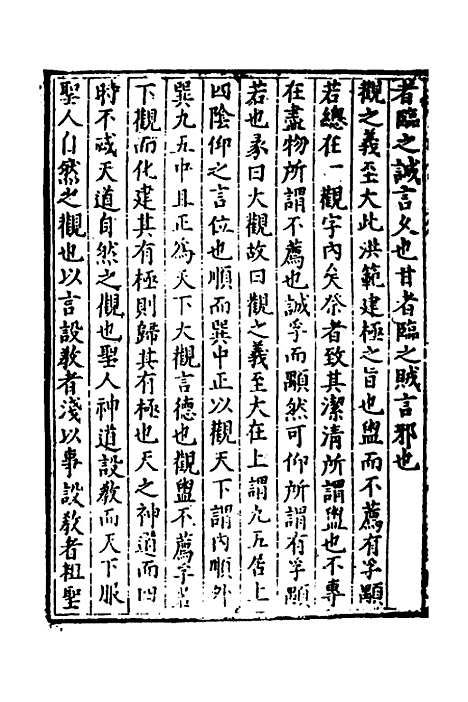 者臨之誠言久也甘者臨之賊言邪也
觀之義至大此洪範建極之旨也盥而不薦有孚顒
若總在一觀字內矣祭者致其潔清所謂盥也不專
在盡物所謂不薦也誠孚而顒然可仰所謂有孚顒
若也彖曰大觀故曰觀之義至大在上謂九五居上
四陰仰之言位也順而巽中正以觀天下謂內順外
巽九五中且正為天下大觀言德也觀盥不薦字若
下觀而化建其有極則歸其有極也天之神道而四
時不忒天道自然之觀也聖人神道設教而天下服
聖人自然之觀也以言設教者淺以事設教者粗聖